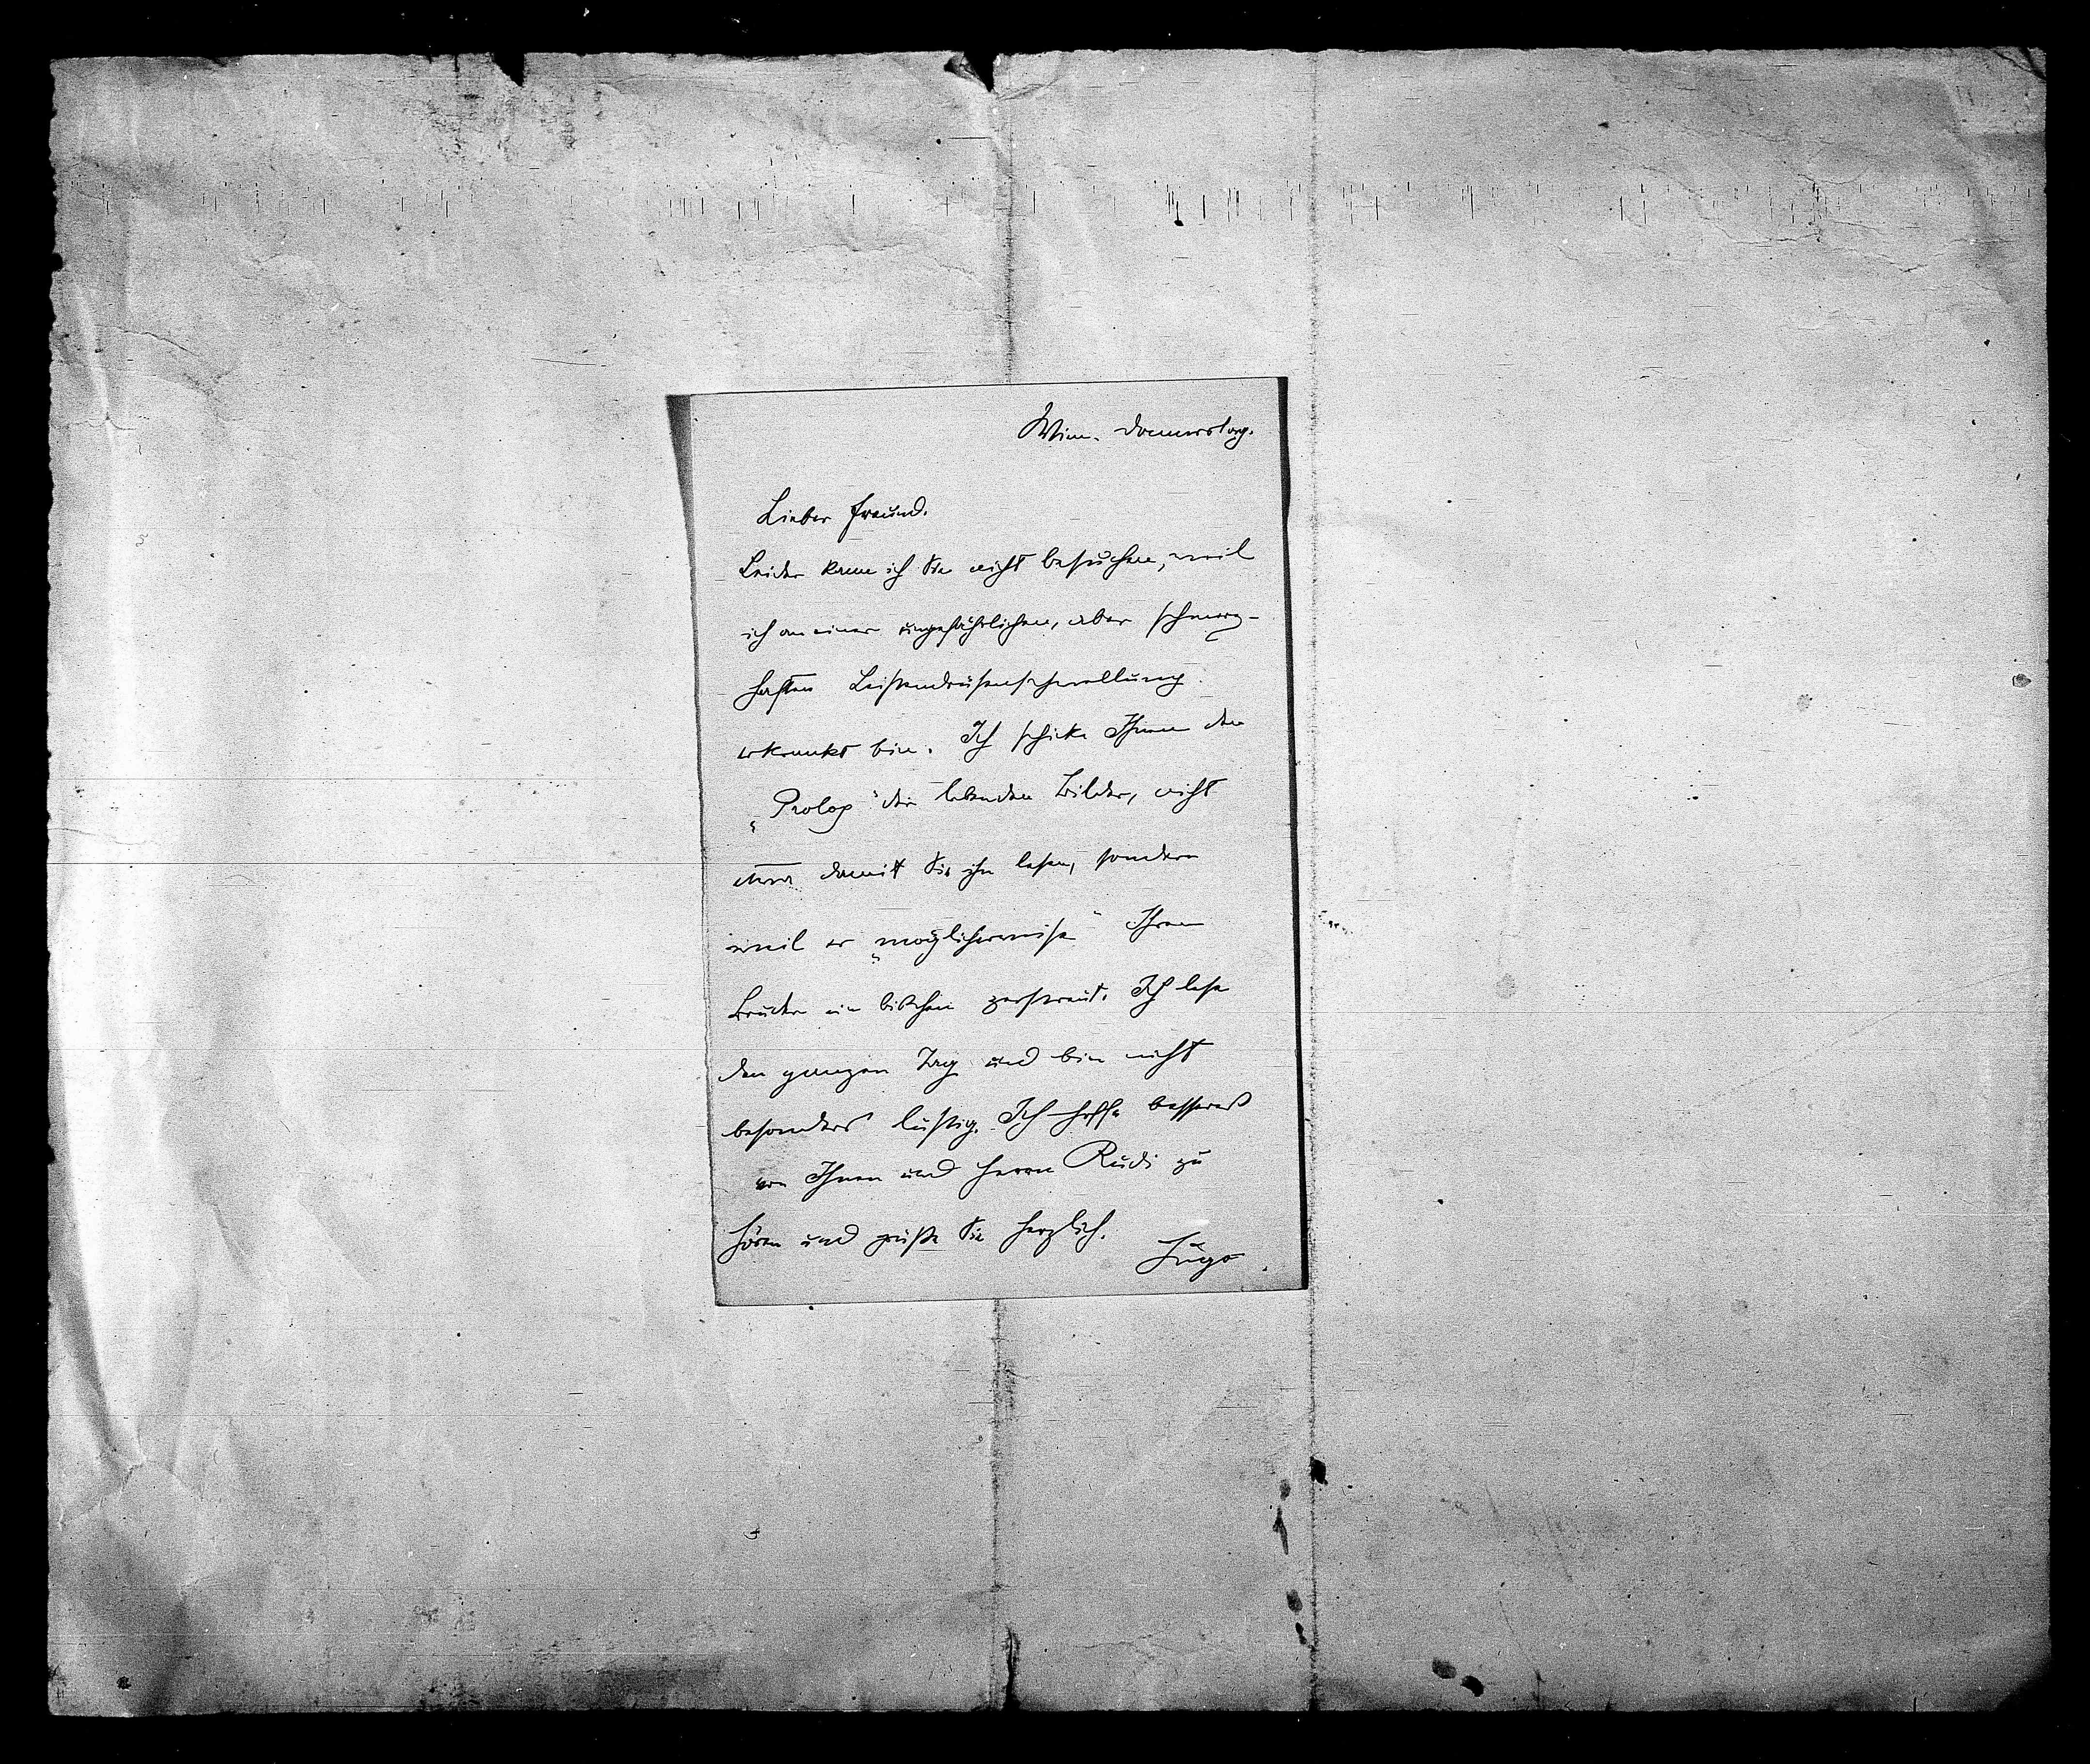 Wien. Donnerstag.
Lieber Freund.
Leider kann ich Sie nicht besuchen, weil
ich an einer ungefährlichen, aber schmerz-
haften Leistendrüsenschwellung
erkrankt bin. Ich schicke Ihnen den
„Prolog“ der lebenden Bilder, nicht
etwa damit Sie ihn lesen, sondern
weil er „möglicherweise“ Ihren
Bruder ein bißchen zerstreut. Ich lese
den ganzen Tag und bin nicht
besonders lustig. Ich hoffe besseres
von Ihnen und Herrn Rudi zu
hören und grüße Sie herzlich.
Hugo